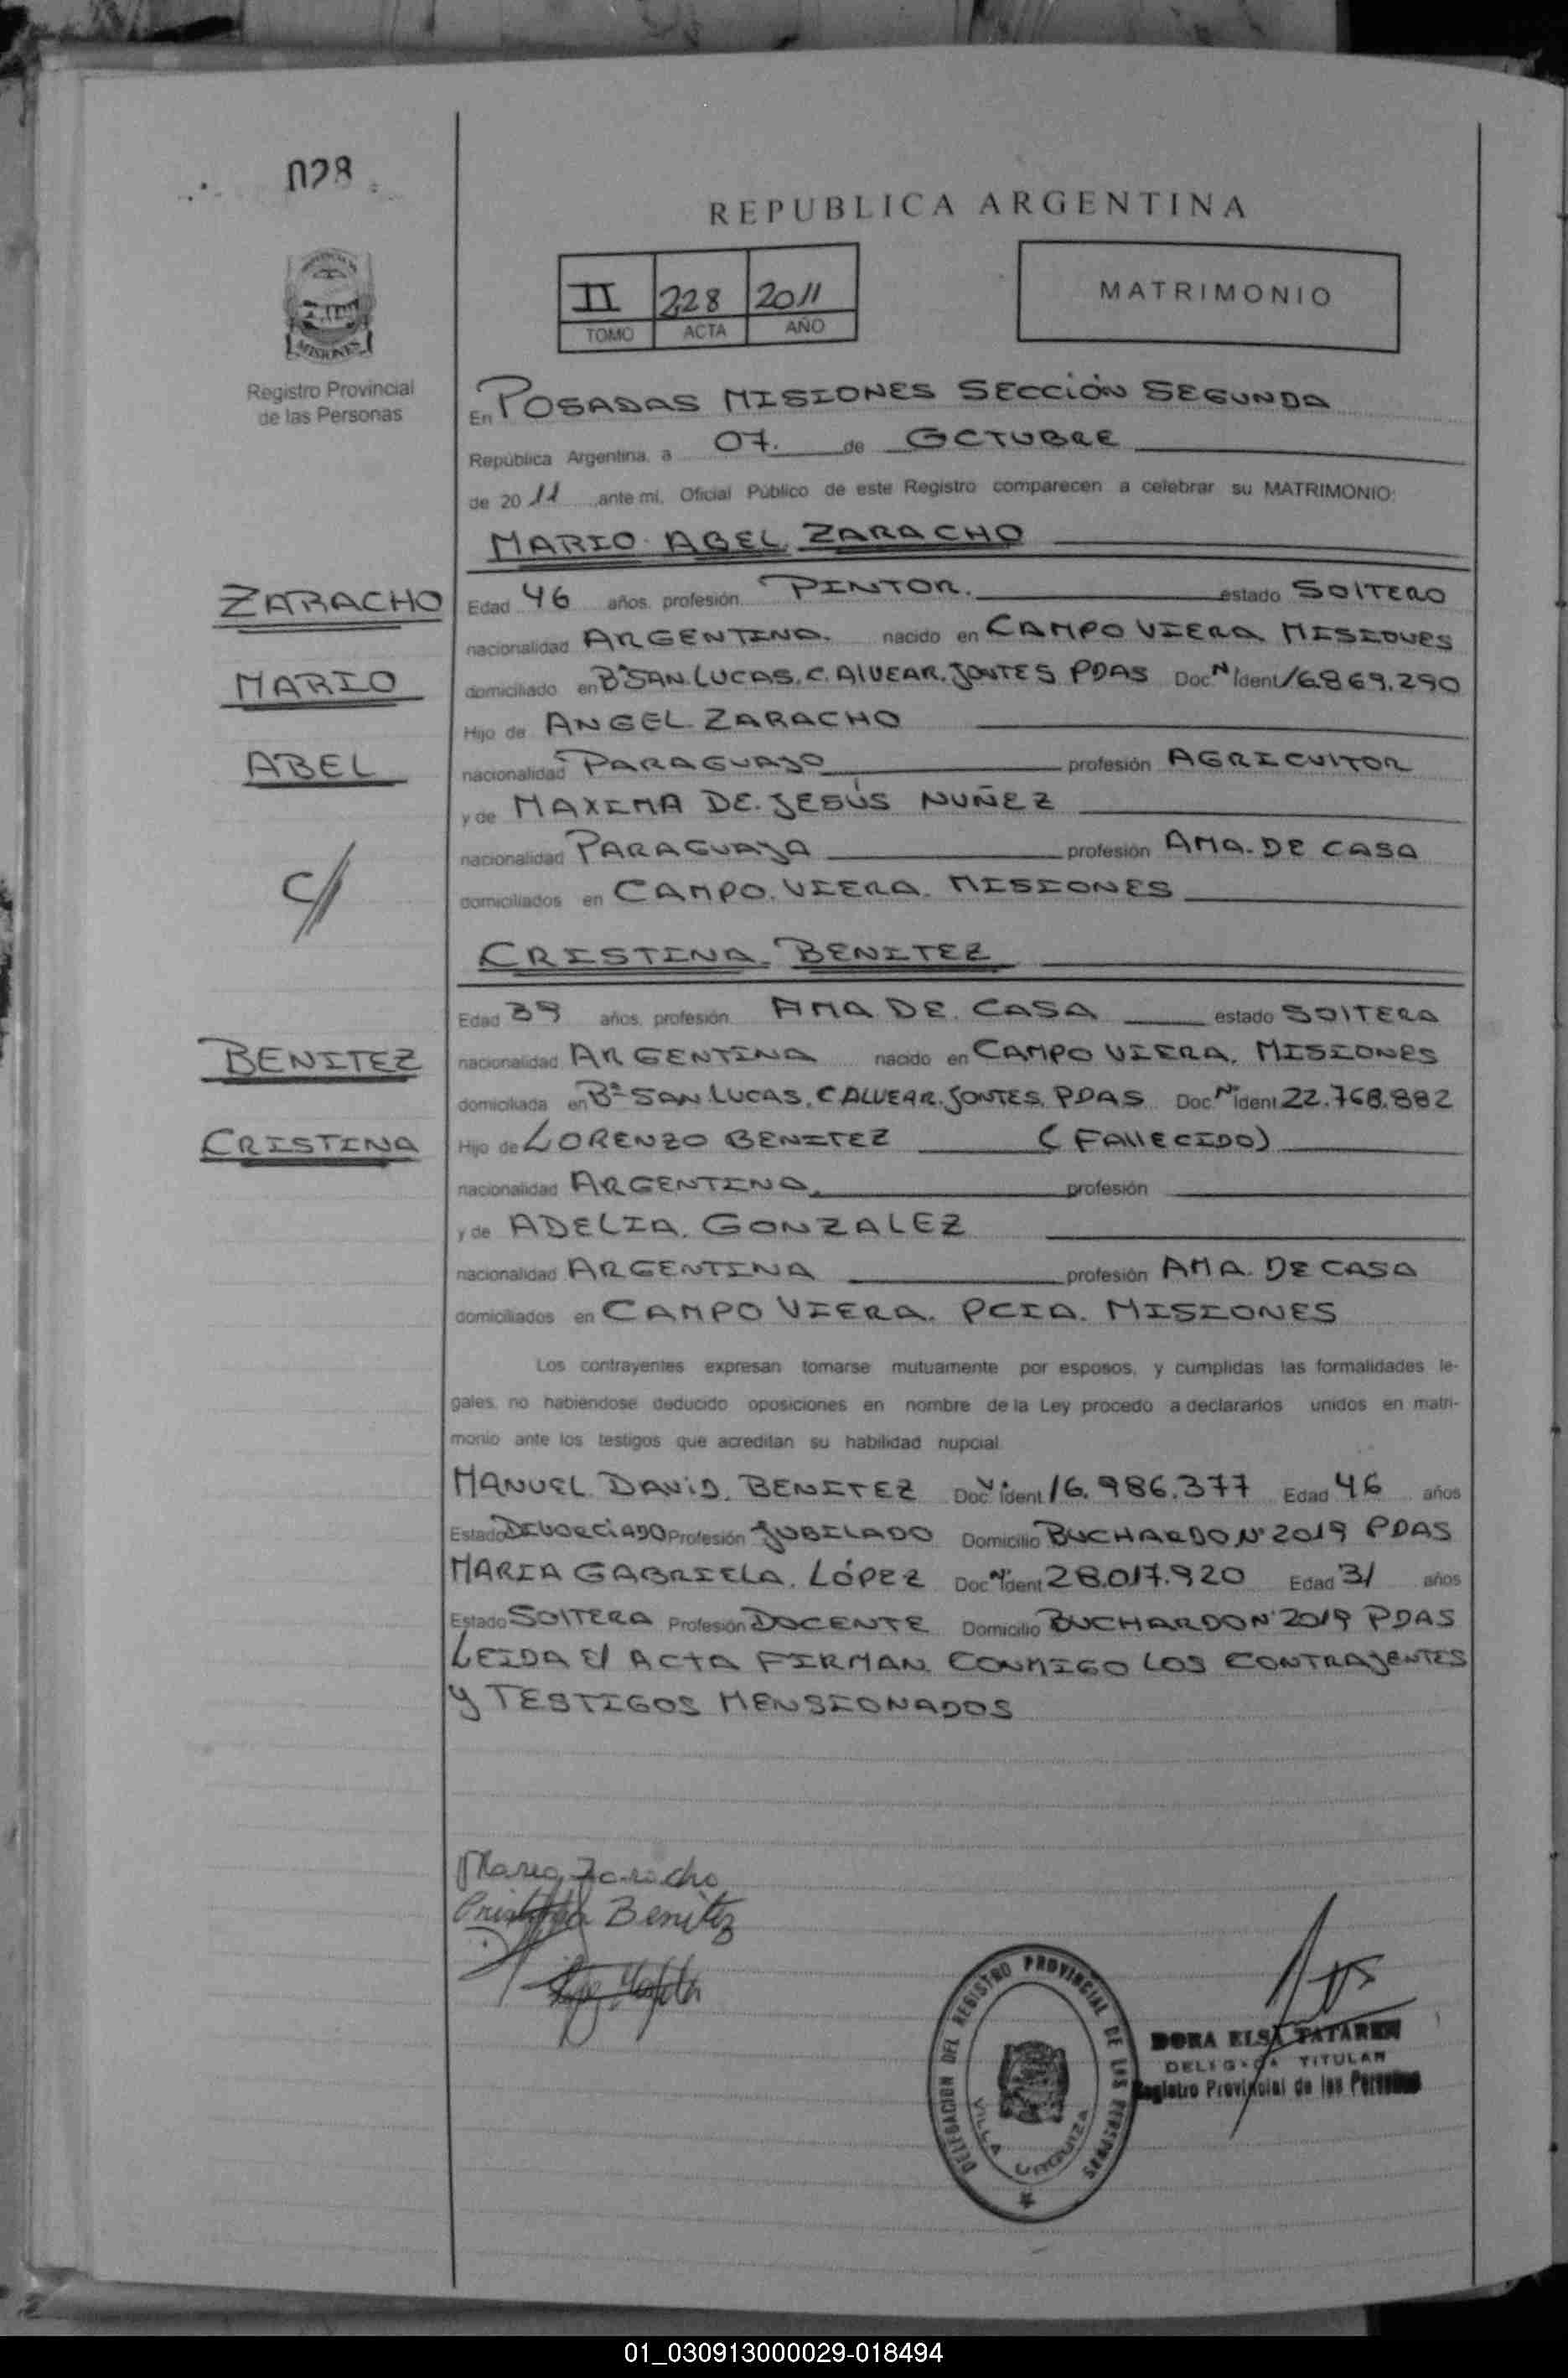 028
REPUBLICA ARGENTINA
II 228 2011
TOMO ACTA AÑO
MATRIMONIO
MISIONES
Registro Provincial
de las Personas
En POSADAS MISIONES SECCIÓN SEGUNDA
República Argentina, a 07. de OCTUBRE
de 2011 ,ante mi, Oficial Público de este Registro comparecen a celebrar su MATRIMONIO:
MARIO ABEL ZARACHO
ZARACHO
Edad 46 años, profesión PINTOR. estado SOLTERO
nacionalidad ARGENTINA. nacido en CAMPO VIERA MISIONES
MARIO
domiciliado en Bº SAN. LUCAS. C. ALVEAR. S/ONTES PDAS Doc. Nº Ident 16.869.290
Hijo de ANGEL ZARACHO
ABEL
nacionalidad PARAGUAYO profesión AGRICULTOR
y de MAXIMA DE. JESÚS NUÑEZ
nacionalidad PARAGUAYA profesión AMA. DE CASA
C/
domiciliados en CAMPO. VIERA. MISIONES
CRISTINA BENITEZ
Edad 39 años, profesión AMA DE. CASA estado SOLTERA
BENITEZ
nacionalidad ARGENTINA nacido en CAMPO VIERA. MISIONES
domiciliada en Bº SAN LUCAS. C ALVEAR. S/ONTES. PDAS Doc. Nº Ident 22.768.882
CRISTINA
Hijo de LORENZO BENITEZ (FALLECIDO)
nacionalidad ARGENTINA. profesión
y de ADELIA. GONZALEZ
nacionalidad ARGENTINA profesión AMA. DE CASA
domiciliados en CAMPO VIERA. PCIA. MISIONES
Los contrayentes expresan tomarse mutuamente por esposos, y cumplidas las formalidades le-
gales, no habiéndose deducido oposiciones en nombre de la Ley procedo a declararlos unidos en matri-
monio ante los testigos que acreditan su habilidad nupcial
MANUEL DAVID. BENITEZ Doc. Nº Ident 16.986.377 Edad 46 años
Estado DIVORCIADO Profesión JUBILADO Domicilio BUCHARDO Nº 2019 PDAS
MARIA GABRIELA. LÓPEZ Doc. Nº Ident 28.017.920 Edad 31 años
Estado SOLTERA Profesión DOCENTE Domicilio BUCHARDO Nº 2019 PDAS
LEIDA El ACTA FIRMAN CONMIGO LOS CONTRAYENTES
y TESTIGOS MENSIONADOS
Mario Zaracho
Cristina Benitez
DELEGACION DEL REGISTRO PROVINCIAL DE LAS PERSONAS
VILLA URQUIZA
DORA ELSA TATAREN
DELEGADA TITULAR
Registro Provincial de las Personas
01_030913000029-018494